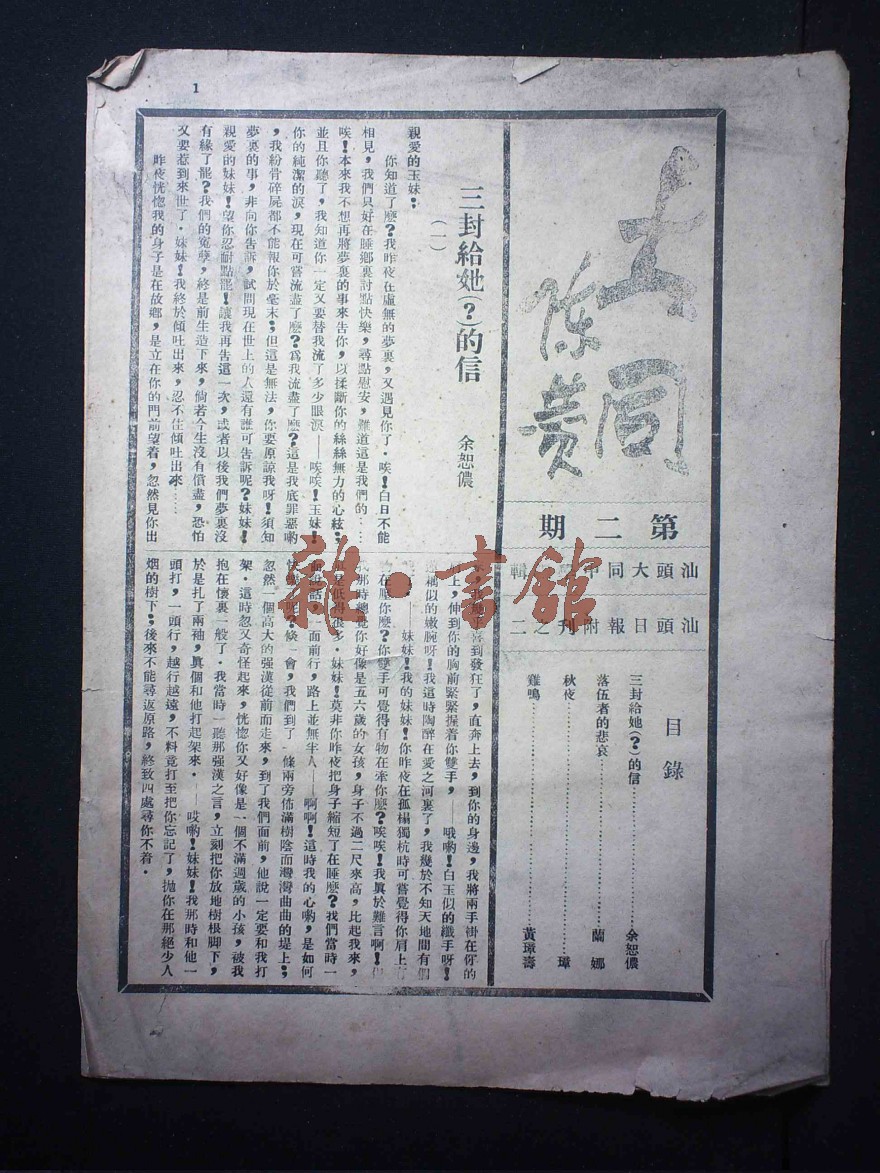 1
大同
第二期
汕頭大同
輯
汕頭日報附刊之二
目錄
三封給她(?)的信……余恕儂
落伍者的悲哀……蘭娜
秋夜……璋
雞鳴……黃璋壽
三封給她(?)的信
余恕儂
(一)
親愛的玉妹:
你知道了麽?我昨夜在虛無的夢裏,又遇見你了.唉!白日不能
相見,我們只好在睡鄉裏討點快樂,尋點慰安,難道這是我們的……
唉!本來我不想再將夢裏的事來告你,以揉斷你的絲絲無力的心絃;
並且你聽了,我知道你一定又要替我流了多少眼淚——唉唉!玉妹!
你的純潔的淚,現在可嘗流盡了麽?爲我流盡了麽?這是我底罪惡喲
,我紛骨碎屍都不能報你於毫末;但這是無法,你要原諒我呀!須知
夢裏的事,非向你告訴,試問現在世上的人還有誰可告訴呢?妹妹!
親愛的妹妹!望你忍耐點罷!讓我再告這一次,或者以後我們夢裏沒
有緣了罷?我們的冤孽,終是前生造下來,倘若今生沒有償盡,恐怕
又要惹到來世了.妹妹!我終於傾吐出來,忍不住傾吐出來……
昨夜恍惚我的身子是在故鄉,是立在你的門前望着,忽然見你出
喜到發狂了,直奔上去,到你的身邊,我將兩手掛在你的
上,伸到你的胸前緊緊握着你雙手,——哦喲!白玉似的纖手呀!
藕似的嫩腕呀!我這時陶醉在愛之河裏了,我幾於不知天地間有個
——妹妹!我的妹妹!你昨夜在孤榻獨枕時可嘗覺得你肩上
在壓你麽?你雙手可覺得有物在牽你麽?唉唉!我眞於難言啊!
那時總覺你好像是五六歲的女孩,身子不過二尺來高,比起我來,
是低得很多.妹妹!莫非你昨夜把身子縮短了在睡麽?我們當時一
面說話,一面前行,路上並無半人——啊啊!這時我的心喲,是如何
呢?倏一會,我們到了一條兩旁佈滿樹陰而灣灣曲曲的堤上;
忽然一個高大的强漢從前面走來,到了我們面前,他說一定要和我打
架.這時忽又奇怪起來,恍惚你又好像是一個不滿週歲的小孩,被我
抱在懷裏一般了.我當時一聽那强漢之言,立刻把你放地樹根脚下,
於是扎了兩袖,眞個和他打起架來.——哎喲!妹妹!我那時和他一
頭打,一頭行,越行越遠,不料竟打至把你忘記了,拋你在那絕少人
烟的樹下;後來不能尋返原路,終致四處尋你不着.
雜·書館